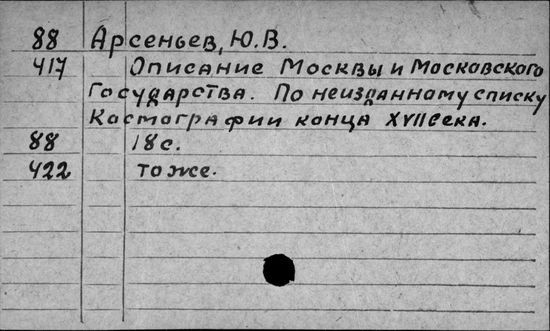 88 Арсеньев, Ю.В.
417 Описание Москвы и Московского
Государства. По неизданному списку
Космографии конца XVII века.
88 18 с.
422 то же.